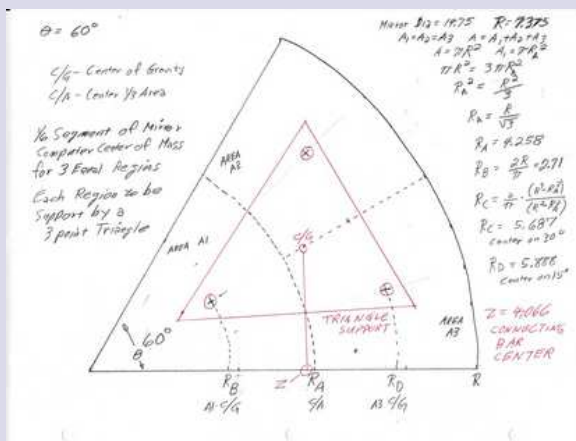 θ = 60°
C/G - Center of Gravity
C/A - Center 1/3 Area
1/6 Segment of Mirror
Computer Center of Mass
for 3 Equal Regins
Each Region to be
Support by a
3 point Triangle
Mirror Dia = 14.75 R = 7.375
A1=A2=A3 A = A1+A2+A3
A = πR² A1 = πRA²
πR² = 3πRA²
RA² = R²/3
RA = R/√3
RA = 4.258
RB = 2R/π = 2.71
RC = 5.687
Center on 30°
RD = 5.888
Center on 15°
Z = 4.066
CONNECTING
BAR
CENTER
AREA
A2
AREA A1
C/G
TRIANGLE
SUPPORT
AREA
A3
60°
θ
RB Z RA RD R
A1-C/G C/A A3 C/G